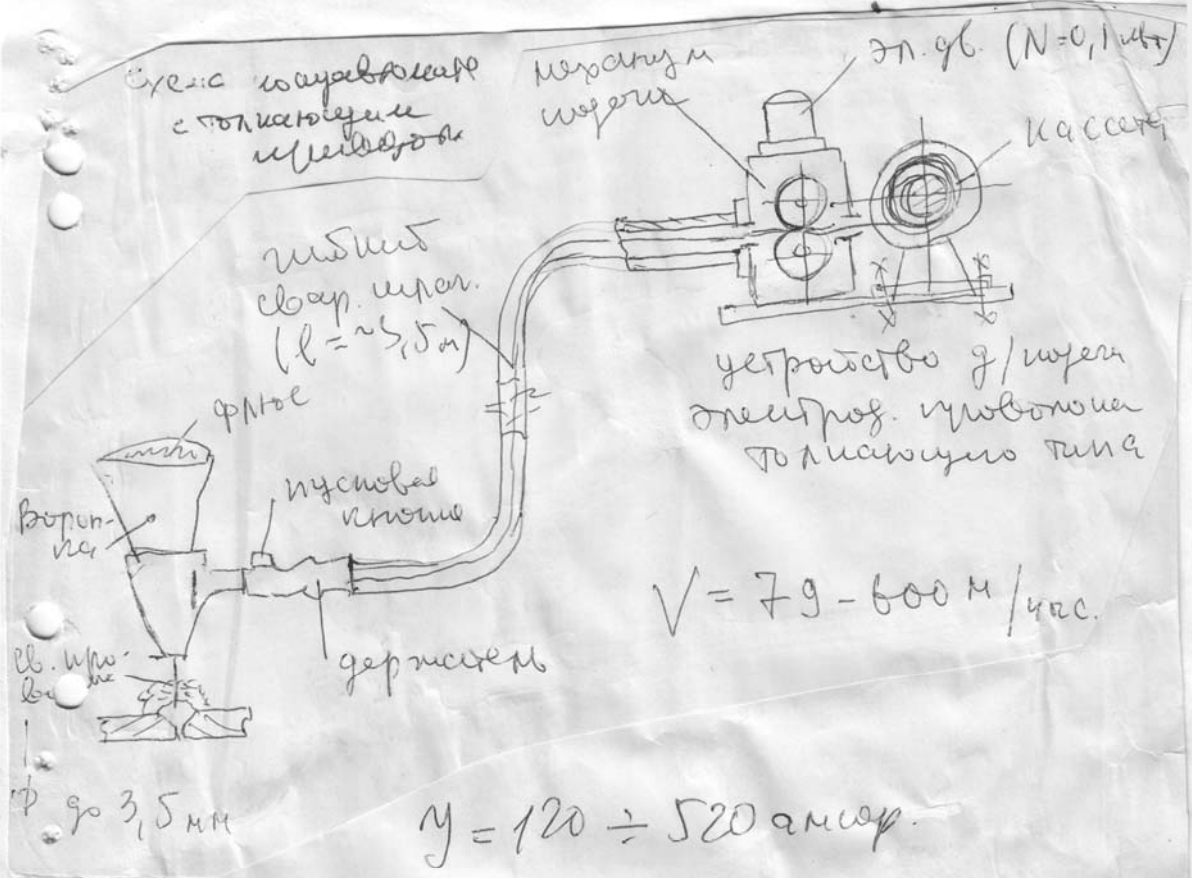 Схема полуавтомата
с толкающим
приводом
механизм
подачи
эл. дв. (N=0,1 квт)
кассета
гибкий
свар. шланг.
(l = ~3,5 м)
устройство д/подачи
электрод. проволоки
толкающего типа
флюс
Ворон-
ка
пусковая
кнопка
V = 79 - 600 м/час.
держатель
св. про-
Ф до 3,5 мм
У = 120 ÷ 520 ампер.